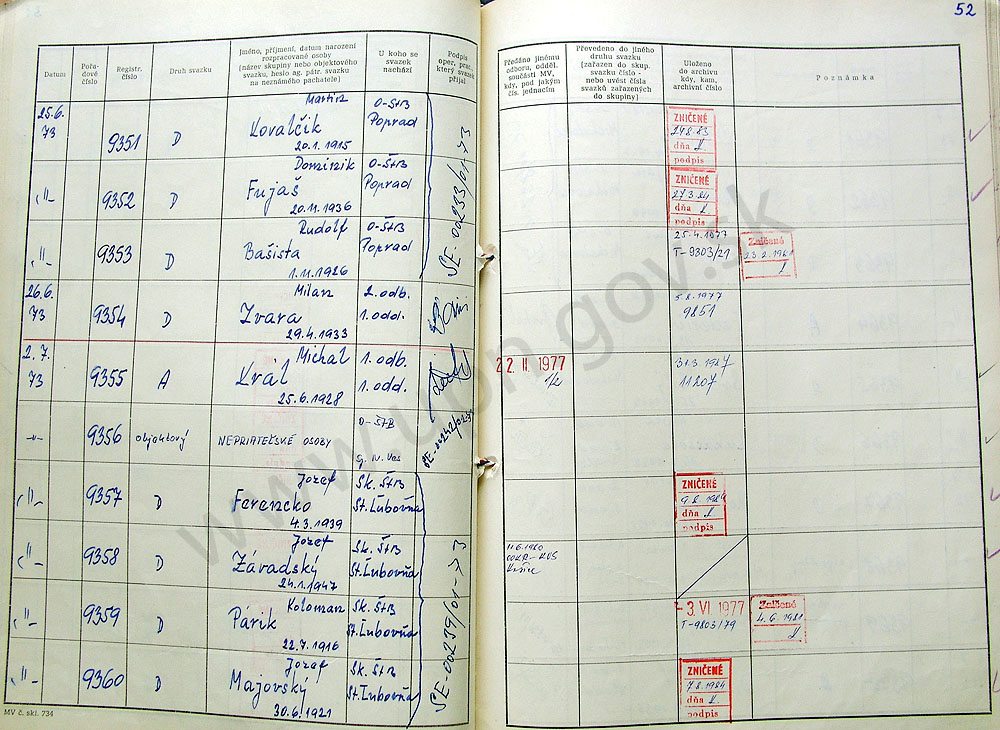 52
Datum
Pořadové číslo
Registr. číslo
Druh svazku
Jméno, příjmení, datum narození
rozpracované osoby
(název skupiny nebo objektového
svazku, heslo ag. pátr. svazku
na neznámého pachatele)
U koho se
svazek
nachází
Podpis
oper. prac.
který svazek
přijal
Předáno jinému
odboru, odděl.
součásti MV,
kdy, pod jakým
čís. jednacím
Převedeno do jiného
druhu svazku
(zařazen do skup.
svazku číslo -
nebo uvést čísla
svazků zařazených
do skupiny)
Uloženo
do archivu
kdy, kam,
archivní číslo
Poznámka
25.6.
73
9351
D
Martin
Kovalčik
20.1.1915
O-ŠtB
Poprad
ZNIČENÉ
24.8.83
dňa
podpis
"
9352
D
Dominik
Fujaš
20.11.1936
O-ŠtB
Poprad
ZNIČENÉ
27.3.84
dňa
podpis
"
9353
D
Rudolf
Bašista
1.11.1926
O-ŠtB
Poprad
25.4.1977
T-9303/21
Zničené
23.2.1981
26.6.
73
9354
D
Milan
Zvara
29.4.1933
2. odb.
1. odd.
5.8.1977
9851
2.7.
73
9355
A
Michal
Kráľ
25.6.1928
1. odb.
1. odd.
22. II. 1977
11207
-"-
9356
objektový
NEPRIATEĽSKÉ OSOBY
O-ŠTB
Sp. N. Ves
"
9357
D
Jozef
Ferencko
4.3.1939
Sk. ŠtB
St.Ľubovňa
ZNIČENÉ
9.8.1984
dňa
podpis
"
9358
D
Jozef
Závadský
24.1.1947
Sk. ŠtB
St.Ľubovňa
11.6.1980
Košice
"
9359
D
Koloman
Párik
22.7.1916
Sk. ŠtB
St.Ľubovňa
- 3. VI. 1977
T-9803/79
Zničené
4.6.1981
"
9360
D
Jozef
Majovský
30.6.1921
Sk. ŠtB
St.Ľubovňa
ZNIČENÉ
7.8.1984
dňa
podpis
SE-00233/01-73
MV č. skl. 734
www.upn.gov.sk